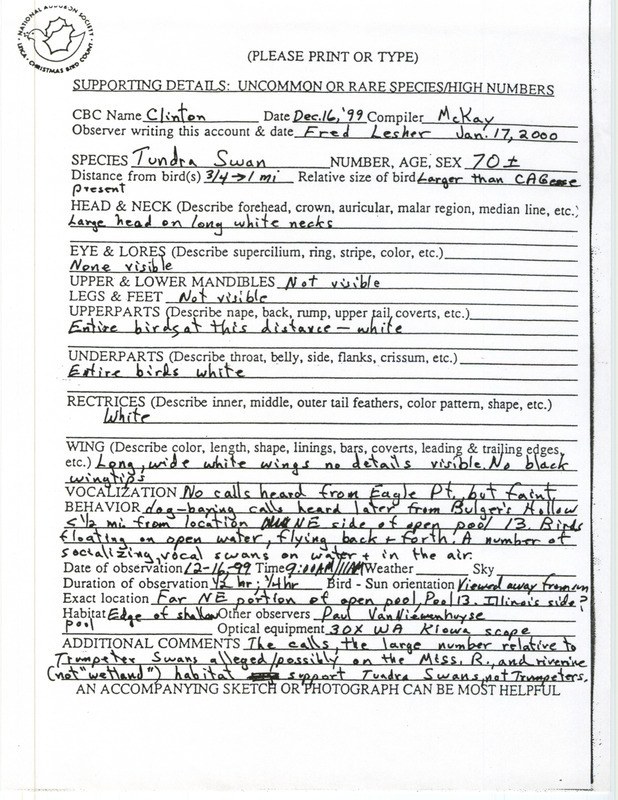 NATIONAL AUDUBON SOCIETY
CHRISTMAS BIRD COUNT
(PLEASE PRINT OR TYPE)
SUPPORTING DETAILS: UNCOMMON OR RARE SPECIES/HIGH NUMBERS
CBC Name Clinton Date Dec.16,'99 Compiler McKay
Observer writing this account & date Fred Lesher Jan. 17, 2000
SPECIES Tundra Swan NUMBER, AGE, SEX 70 ±
Distance from bird(s) 3/4 → 1 mi Relative size of bird Larger than CAGeese
present
HEAD & NECK (Describe forehead, crown, auricular, malar region, median line, etc.)
Large head on long white necks
EYE & LORES (Describe supercilium, ring, stripe, color, etc.)
None visible
UPPER & LOWER MANDIBLES Not visible
LEGS & FEET Not visible
UPPERPARTS (Describe nape, back, rump, upper tail, coverts, etc.)
Entire birds at this distance — white
UNDERPARTS (Describe throat, belly, side, flanks, crissum, etc.)
Entire birds white
RECTRICES (Describe inner, middle, outer tail feathers, color pattern, shape, etc.)
White
WING (Describe color, length, shape, linings, bars, coverts, leading & trailing edges,
etc.) Long, wide white wings no details visible. No black
wingtips
VOCALIZATION No calls heard from Eagle Pt., but faint
BEHAVIOR dog-baying calls heard later from Bulger's Hollow
<1/2 mi. from location NE side of open pool 13. Birds
floating on open water, flying back + forth. A number of
socializing, vocal swans on water + in the air.
Date of observation 12-16-99 Time 9:00AM/11AM Weather Sky
Duration of observation 1/2 hr; 1/4 hr Bird - Sun orientation Viewed away from sun
Exact location Far NE portion of open pool Pool 13. Illinois side?
Habitat Edge of shallow Other observers Paul VanNiewenhuyse
pool Optical equipment 30X WA Kiowa scope
ADDITIONAL COMMENTS The calls, the large number relative to
Trumpeter Swans alleged/possibly on the Miss. R., and riverine
(not "wetland") habitat support Tundra Swans, not Trumpeters.
AN ACCOMPANYING SKETCH OR PHOTOGRAPH CAN BE MOST HELPFUL